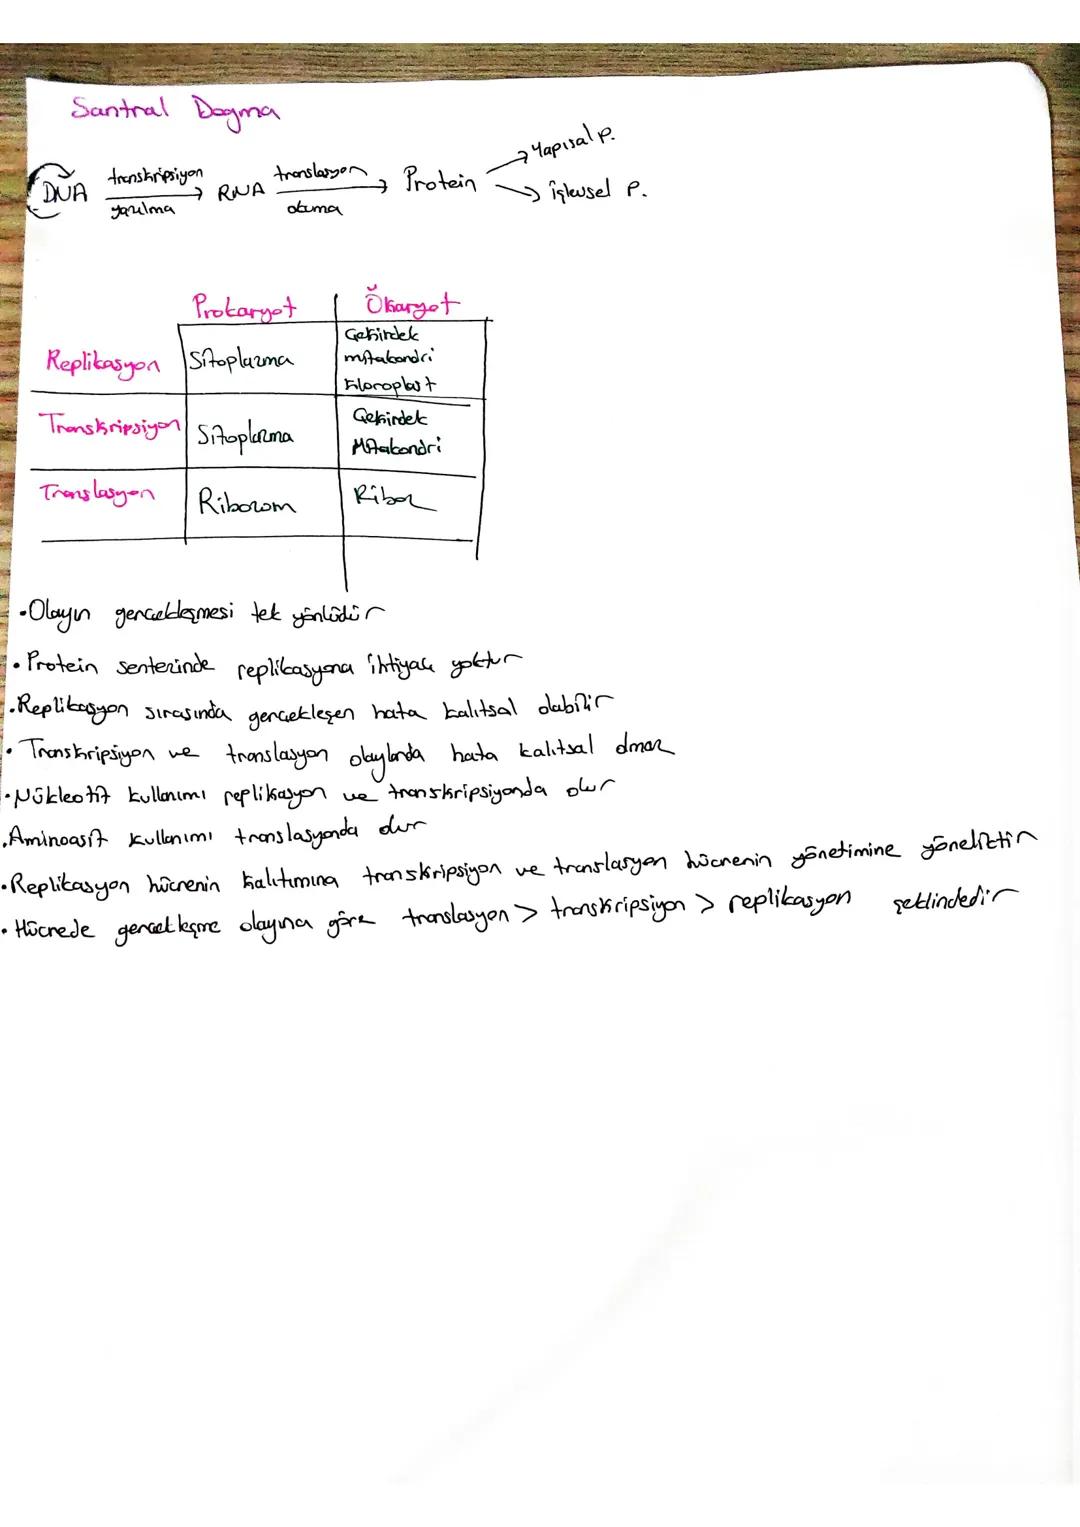 Santral Dogma
DNA transkripsiyon yazılma → RNA translasyon okuma → Protein → Yapısal p.
→ işlevsel p.
Prokaryot Ökaryot
Replikasyon Sitoplazma Çekirdek
mitokondri
kloroplast
Transkripsiyon Sitoplazma Çekirdek
Mitokondri
Translasyon Ribozom Riboz
• Olayın gerçekleşmesi tek yönlüdür
• Protein sentezinde replikasyona ihtiyaç yoktur
• Replikasyon sırasında gerçekleşen hata kalıtsal olabilir
• Transkripsiyon ve translasyon olaylarıda hata kalıtsal olmaz
• Nükleotit kullanımı replikasyon ve transkripsiyonda olur
• Aminoasit kullanımı translasyonda olur
• Replikasyon hücrenin kalıtımına transkripsiyon ve translasyon hücrenin yönetimine yöneliktir
• Hücrede gerçekleşme olayına göre translasyon > transkripsiyon > replikasyon şeklindedir